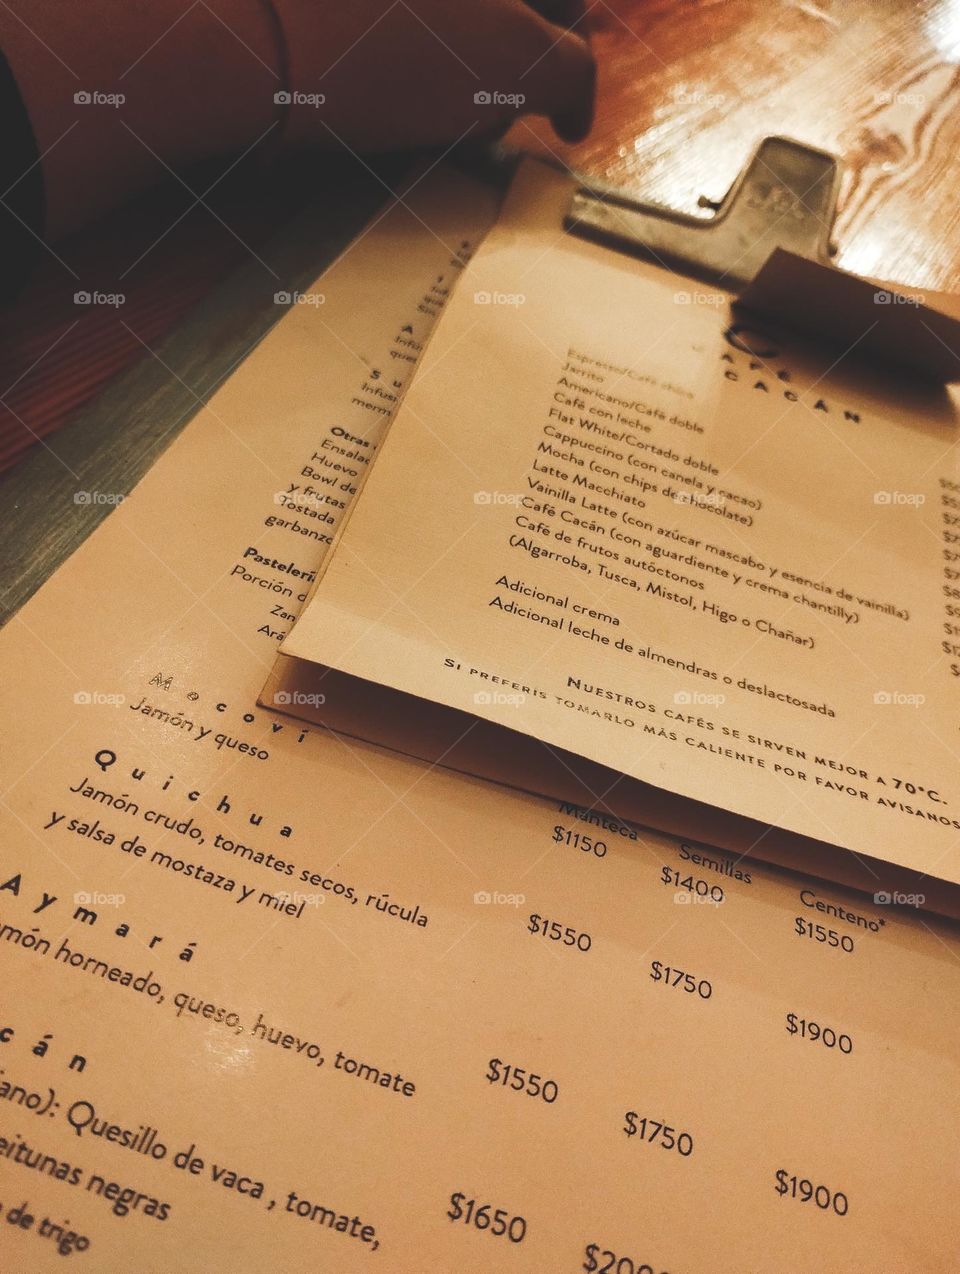 CAFÉ
CACÁN
Espresso/Café chico
Jarrito
Americano/Café doble
Café con leche
Flat White/Cortado doble
Cappuccino (con canela y cacao)
Mocha (con chips de chocolate)
Latte Macchiato
Vainilla Latte (con azúcar mascabo y esencia de vainilla)
Café Cacán (con aguardiente y crema chantilly)
Café de frutos autóctonos
(Algarroba, Tusca, Mistol, Higo o Chañar)
Adicional crema
Adicional leche de almendras o deslactosada
NUESTROS CAFÉS SE SIRVEN MEJOR A 70°C.
SI PREFERIS TOMARLO MÁS CALIENTE POR FAVOR AVISANOS
Otras
Huevo
Bowl de
y frutas
Tostada
Pastelería
Porción d
Mocoví
Jamón y queso
Manteca Semillas Centeno*
$1150 $1400 $1550
Quichua
Jamón crudo, tomates secos, rúcula
y salsa de mostaza y miel
$1550 $1750 $1900
Aymará
món horneado, queso, huevo, tomate
$1550 $1750 $1900
cán
ano): Quesillo de vaca , tomate,
eitunas negras
de trigo
$1650
foap